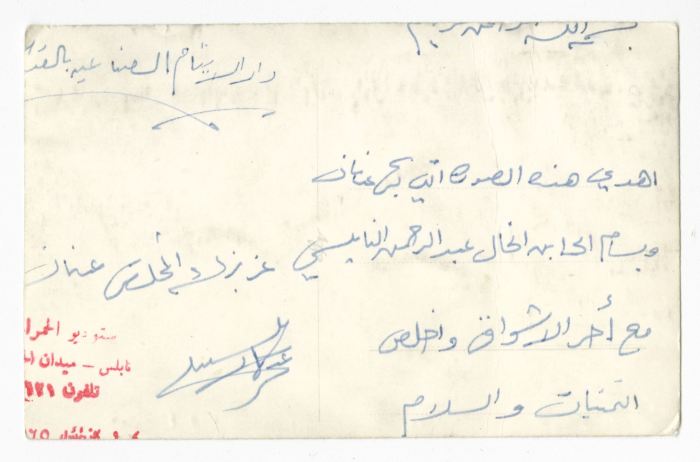 بسم الله الرحمن الرحيم
دار الايتام الصناعيه بالقد
اهدي هذه الصورة
وبسام الى ابن الخال عبد الرحمن النابلسي
عزيزكم المخلص عدنان
مع أحر الاشواق واخلص
التمنيات والسلام
ستوديو الحمرا
نابلس - ميدان
تلفون